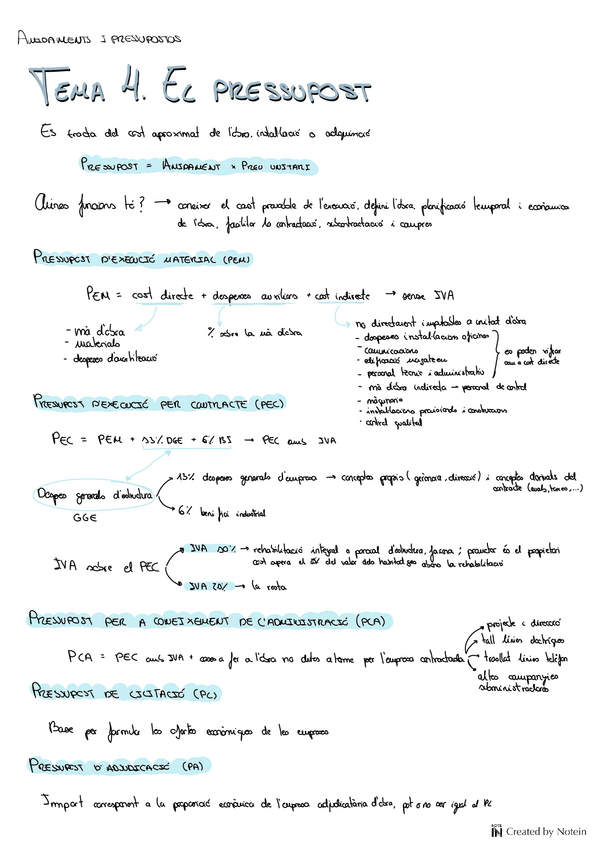 AMIDAMENTS I PRESSUPOSTOS
TEMA 4. EL PRESSUPOST
Es tracta del cost aproximat de l'obra, instal·lació o adquisició
PRESSUPOST = AMIDAMENT x PREU UNITARI
Quines funcions té? → conèixer el cost probable de l'execució, definir l'obra, planificació temporal i econòmica
de l'obra, facilitar la contractació, subcontractació i compres
PRESSUPOST D'EXECUCIÓ MATERIAL (PEM)
PEM = cost directe + despeses auxiliars + cost indirecte → sense IVA
- mà d'obra
- materials
- despeses d'amortització
% sobre la mà d'obra
no directament imputables a unitat d'obra
- despeses instal·lacions oficines
- comunicacions
- edificació magatzem
- personal tècnic i administratiu
es poden
com a cost directe
- mà d'obra indirecta → personal de control
- maquinària
- instal·lacions provisionals i construccions
- control qualitat
PRESSUPOST D'EXECUCIÓ PER CONTRACTE (PEC)
PEC = PEM + 13% DGE + 6% BI → PEC amb IVA
Despeses generals d'estructura
GGE
13% despeses generals d'empresa → conceptes propis (gerència, direcció) i conceptes derivats del
contracte (avals, taxes, ...)
6% benefici industrial
IVA sobre el PEC
IVA 10% → rehabilitació integral o parcial d'estructura, façana; promotor és el propietari
cost supera el 25% del valor dels habitatges abans la rehabilitació
IVA 20% → la resta
PRESSUPOST PER A CONEIXEMENT DE L'ADMINISTRACIÓ (PCA)
PCA = PEC amb IVA + coses a fer a l'obra no dutes a terme per l'empresa contractada
projecte i direcció
tall línies elèctriques
trasllat línies telèfon
altres companyies
subministradores
PRESSUPOST DE LICITACIÓ (PL)
Base per formular les ofertes econòmiques de les empreses
PRESSUPOST D'ADJUDICACIÓ (PA)
Import corresponent a la proposició econòmica de l'empresa adjudicatària d'obra, pot o no ser igual al PL
NOTE IN Created by Notein